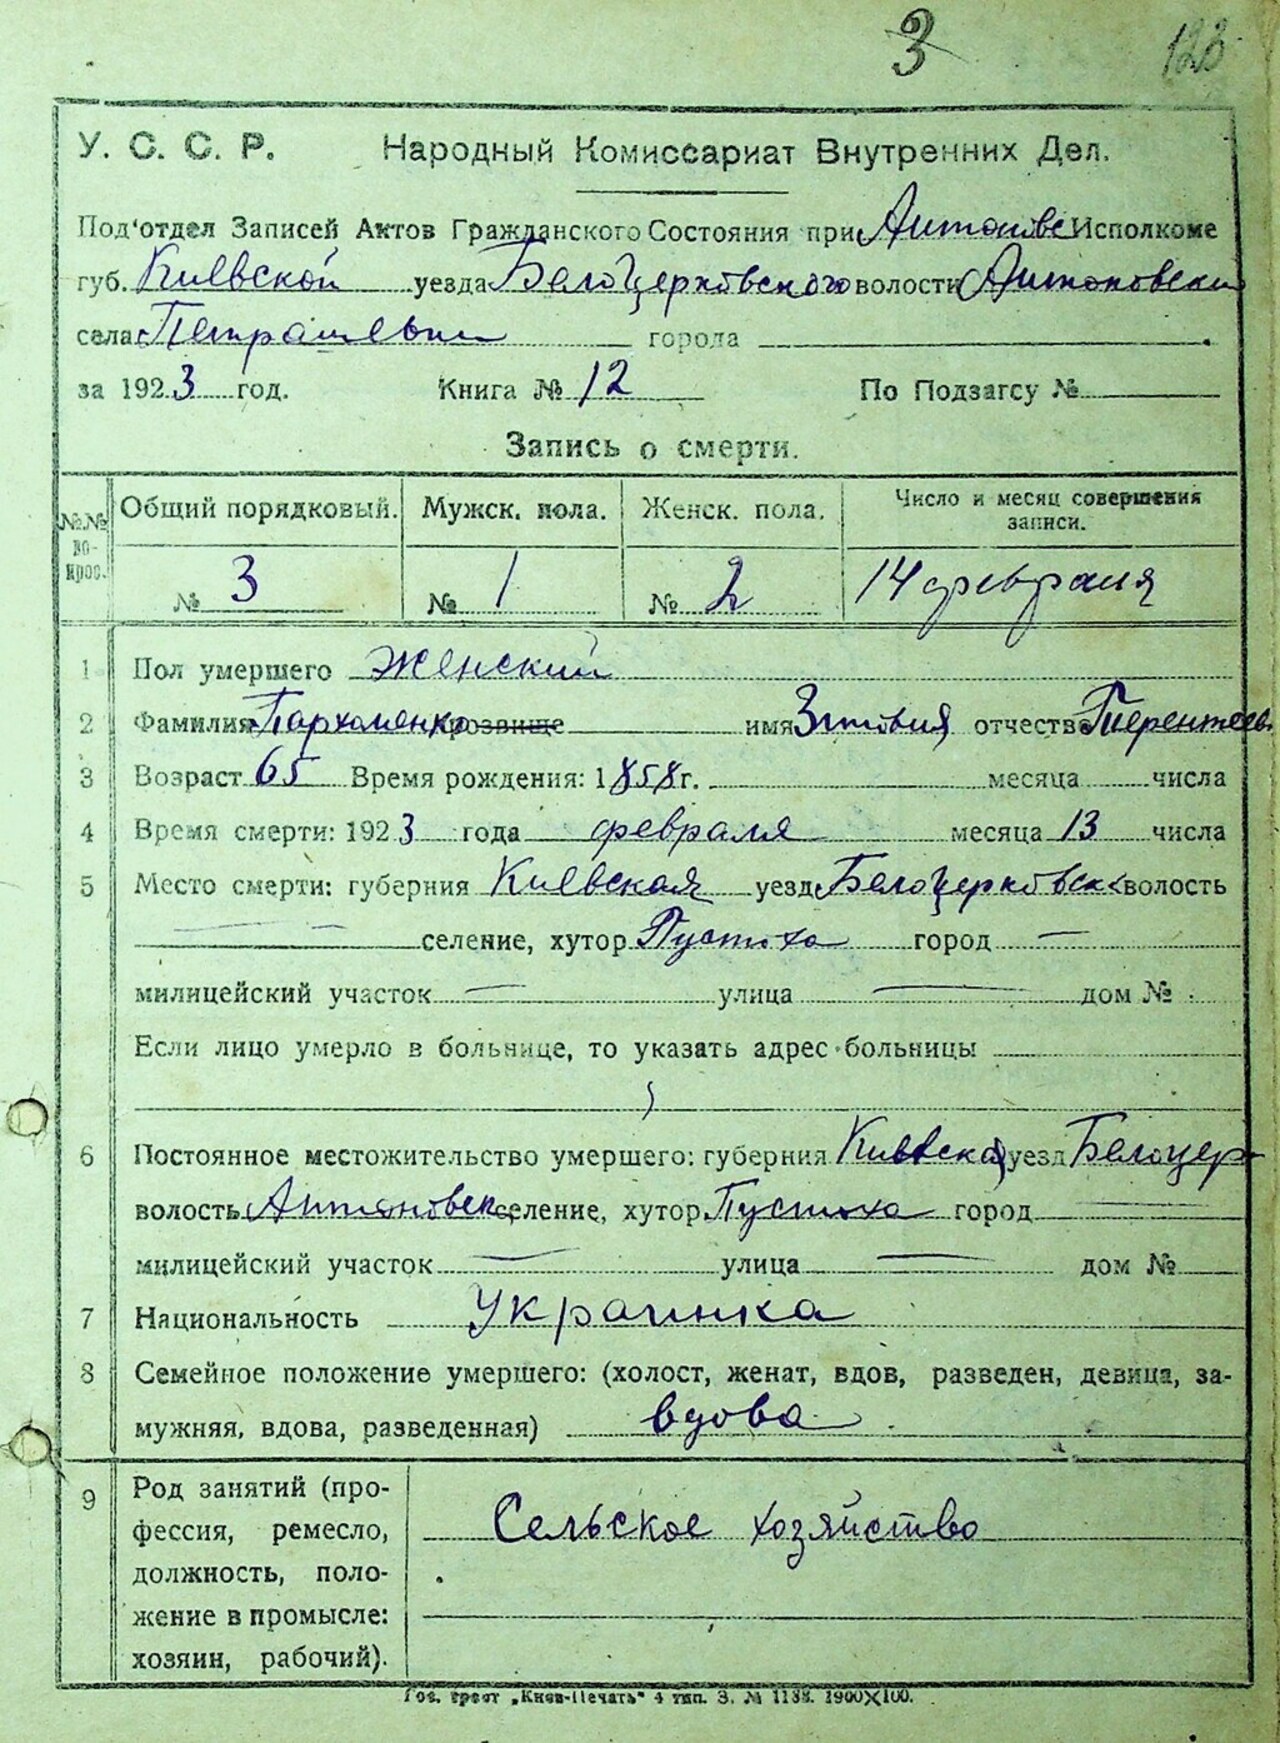 3 123
У. С. С. Р. Народный Комиссариат Внутренних Дел.
Под'отдел Записей Актов Гражданского Состояния при Антоновс Исполкоме
губ. Киевской уезда Белоцерковского волости Антоновской
села города
за 1923 год. Книга № 12 По Подзагсу №
Запись о смерти.
№№ во-прос. Общий порядковый. Мужск. пола. Женск. пола. Число и месяц совершения записи.
№ 3 № 1 № 2 14 февраля
1 Пол умершего Женский
2 Фамилия Пархоменко прозвище имя отчество Терентьев
3 Возраст 65 Время рождения: 1858 г. месяца числа
4 Время смерти: 1923 года февраля месяца 13 числа
5 Место смерти: губерния Киевская уезд Белоцерковск волость
— — селение, хутор Пустоха город —
милицейский участок — улица — дом №
Если лицо умерло в больнице, то указать адрес больницы
6 Постоянное местожительство умершего: губерния Киевская уезд Белоцер
волость Антоновск селение, хутор Пустоха город —
милицейский участок — улица — дом №
7 Национальность Украинка
8 Семейное положение умершего: (холост, женат, вдов, разведен, девица, за-
мужняя, вдова, разведенная) вдова
9 Род занятий (про-
фессия, ремесло, Сельское хозяйство
должность, поло-
жение в промысле:
хозяин, рабочий).
Гос. трест „Киев-Печать" 4 тип. З. № 1138. 1900Х100.